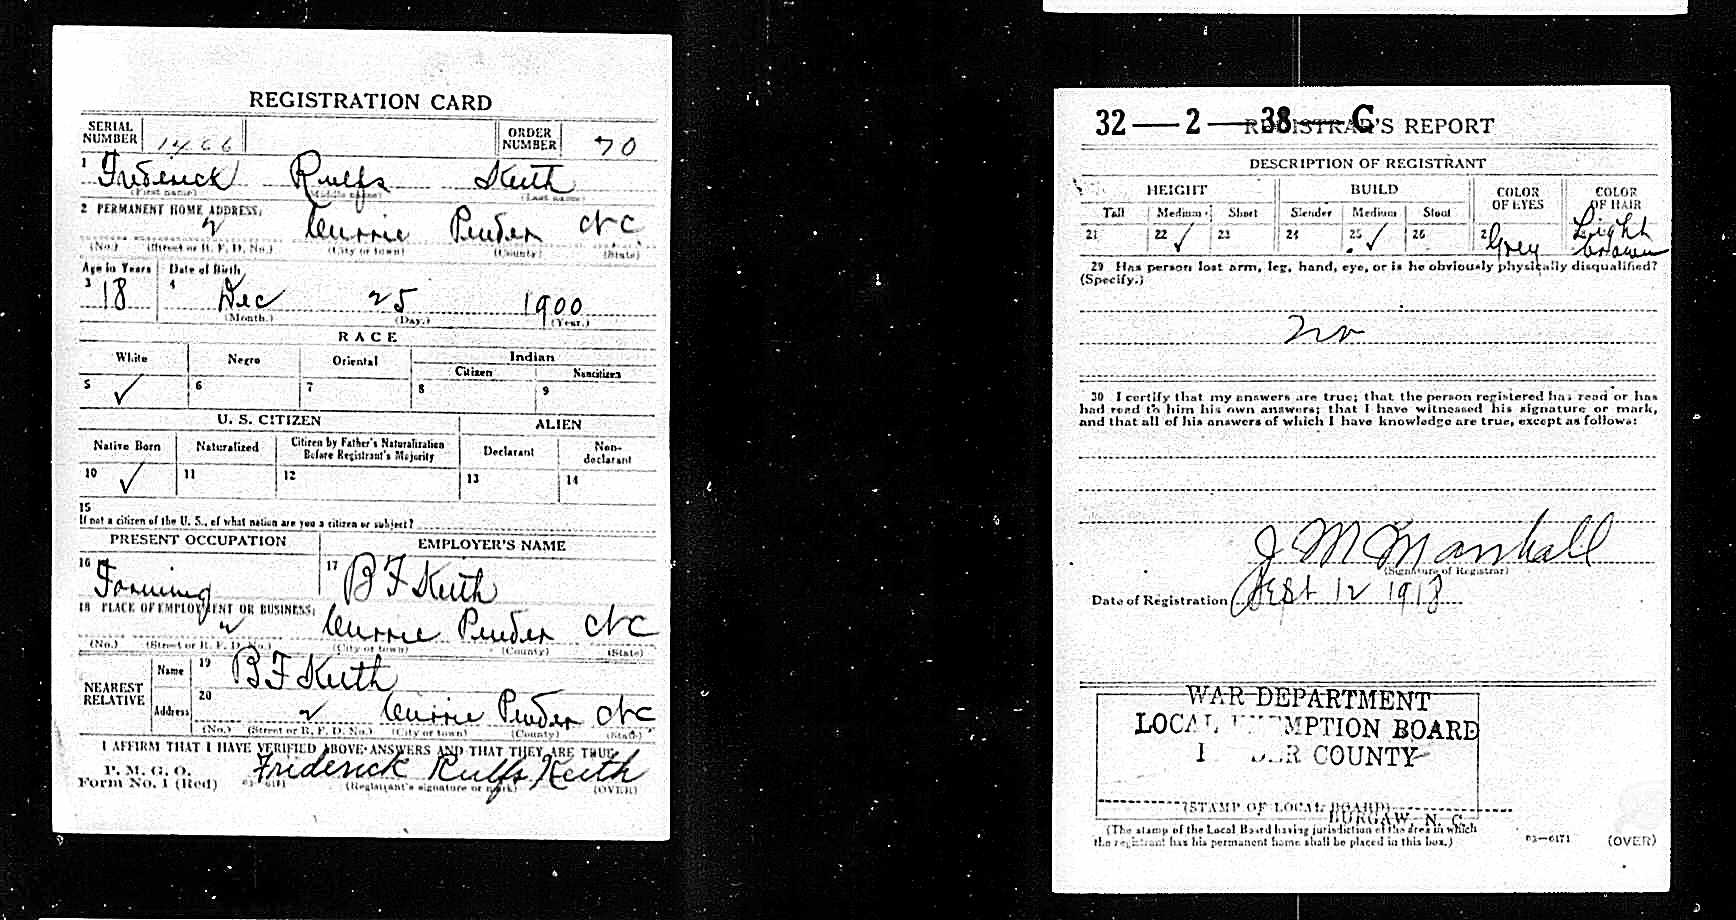 REGISTRATION CARD
SERIAL NUMBER 1466 ORDER NUMBER 70
1 Frederick Rulfs Keith
(First name) (Middle name) (Last name)
2 PERMANENT HOME ADDRESS:
2 Currie Pender NC
(No.) (Street or R. F. D. No.) (City or town) (County) (State)
Age in Years Date of Birth
3 18 4 Dec 25 1900
(Month.) (Day.) (Year.)
RACE
White Negro Oriental Indian
Citizen Noncitizen
5 ✓ 6 7 8 9
U. S. CITIZEN ALIEN
Native Born Naturalized Citizen by Father's Naturalization Before Registrant's Majority Declarant Non-declarant
10 ✓ 11 12 13 14
15
If not a citizen of the U. S., of what nation are you a citizen or subject?
PRESENT OCCUPATION EMPLOYER'S NAME
16 Farming 17 B F Keith
18 PLACE OF EMPLOYMENT OR BUSINESS:
2 Currie Pender NC
(No.) (Street or R. F. D. No.) (City or town) (County) (State)
NEAREST RELATIVE Name 19 B F Keith
Address 20 2 Currie Pender NC
(No.) (Street or R. F. D. No.) (City or town) (County) (State)
I AFFIRM THAT I HAVE VERIFIED ABOVE ANSWERS AND THAT THEY ARE TRUE
P. M. G. O.
Form No. 1 (Red) Friderick Rulfs Keith
(Registrant's signature or mark) (OVER)
32—2—38—C
REGISTRAR'S REPORT
DESCRIPTION OF REGISTRANT
HEIGHT BUILD COLOR OF EYES COLOR OF HAIR
Tall Medium Short Slender Medium Stout
21 22 ✓ 23 24 25 ✓ 26 2 Grey Light brown
29 Has person lost arm, leg, hand, eye, or is he obviously physically disqualified?
(Specify.)
No
30 I certify that my answers are true; that the person registered has read or has
had read to him his own answers; that I have witnessed his signature or mark,
and that all of his answers of which I have knowledge are true, except as follows:
J M Marshall
(Signature of Registrar)
Date of Registration Sept 12 1918
WAR DEPARTMENT
LOCAL EXEMPTION BOARD
PENDER COUNTY
(STAMP OF LOCAL BOARD)
BURGAW, N. C.
(The stamp of the Local Board having jurisdiction of the area in which
the registrant has his permanent home shall be placed in this box.)
03—6171 (OVER)